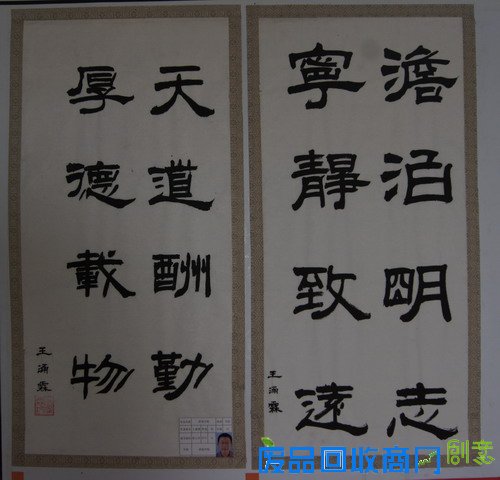 澹泊明志
寧靜致遠
王涌霖
天道酬勤
厚德載物
王涌霖
废品回收商网
創意